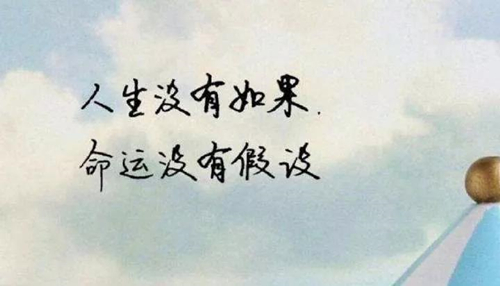 人生没有如果.
命运没有假设